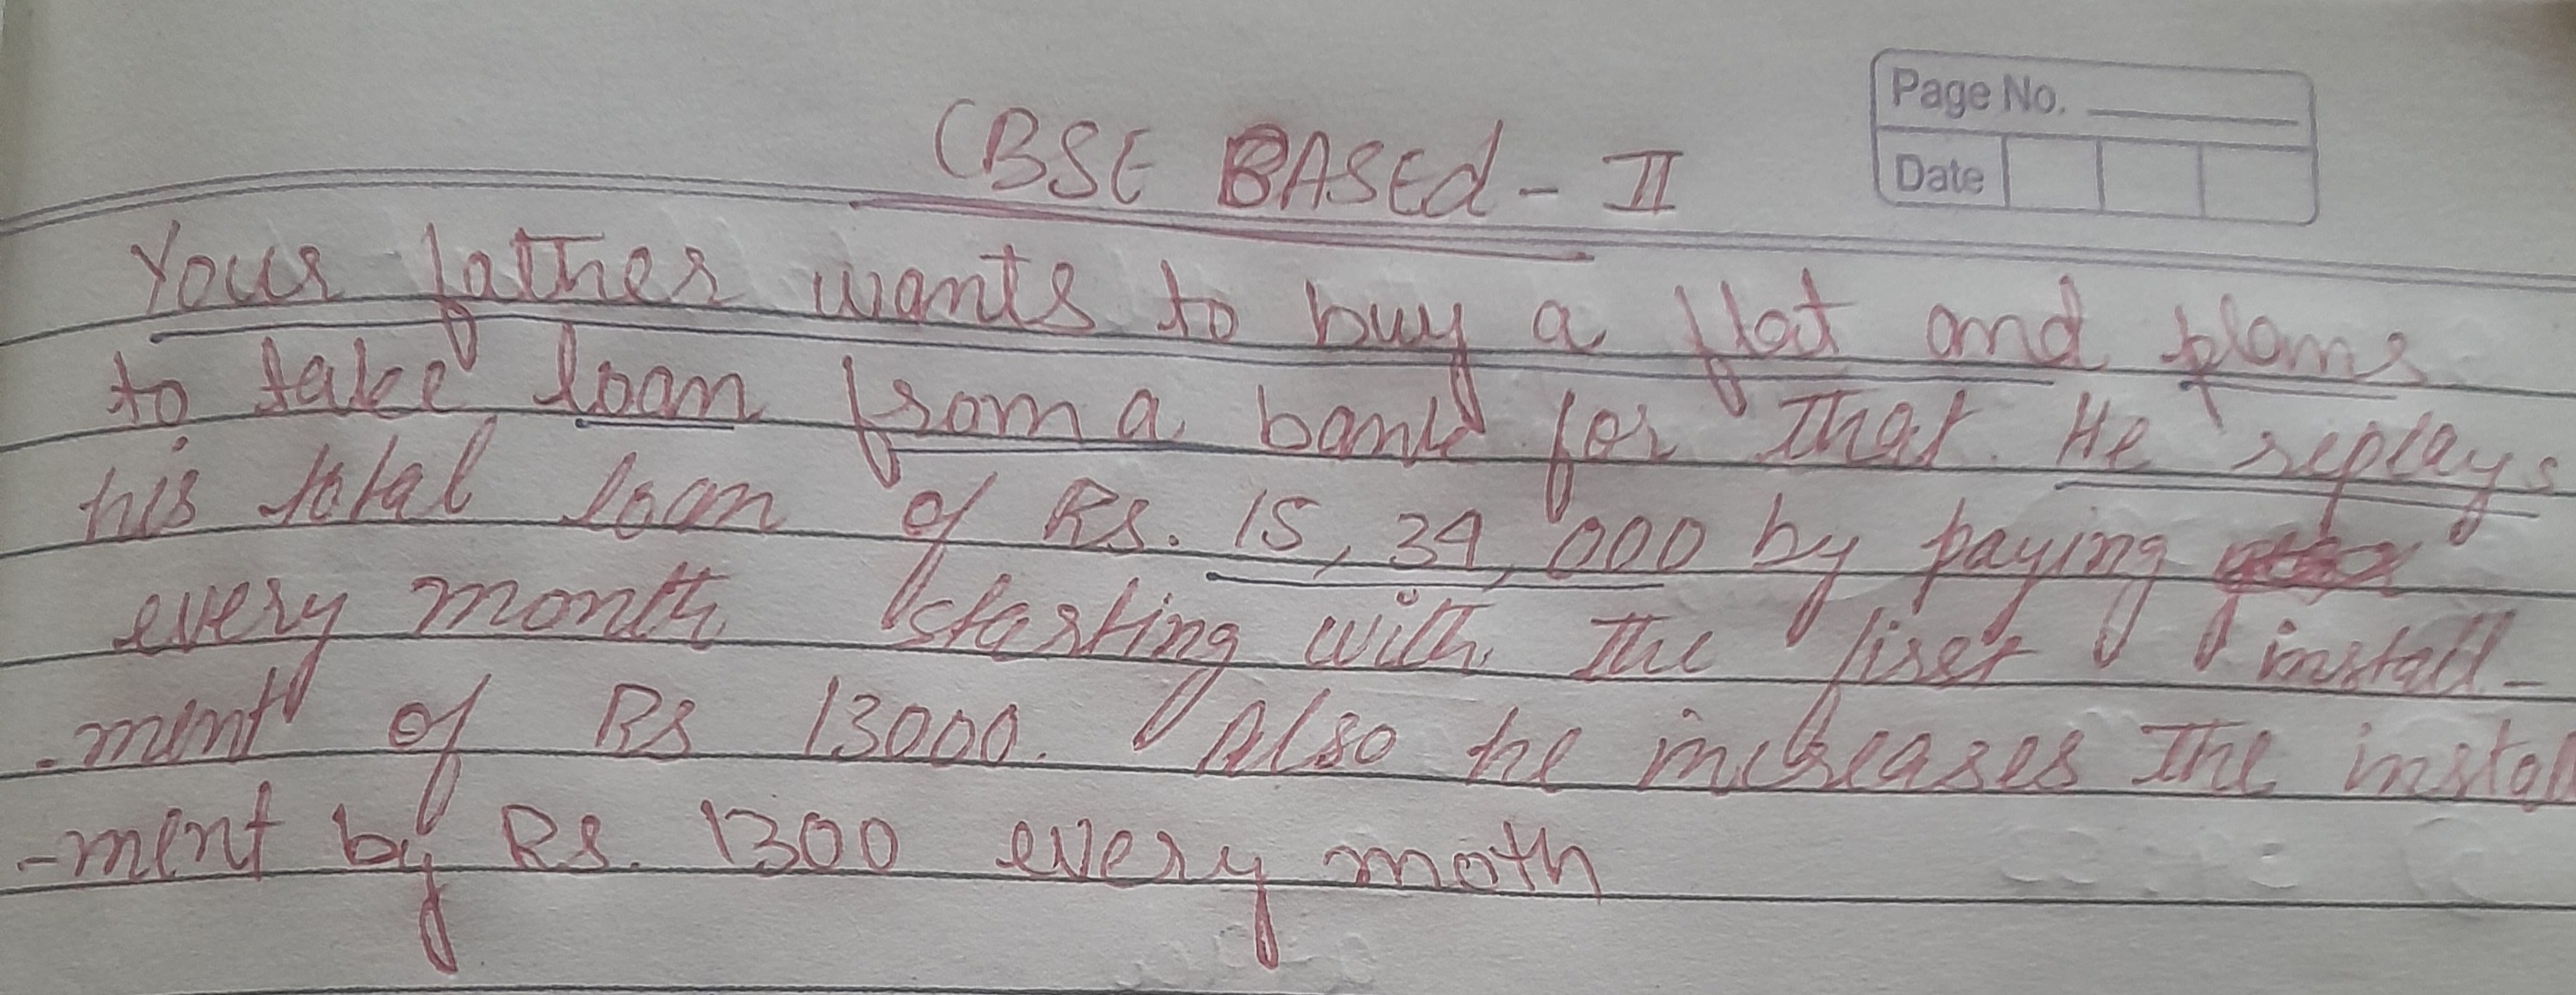 Page No.
Date
CBSE BASEd - II
Your father wants to buy a flat and plans
to take loan from a bank for that. He replays
his total loan of Rs. 15, 34, 000 by paying
every month starting with the first install-
-ment of Rs 13000. Also he increases the instal
-ment by Rs. 1300 every moth